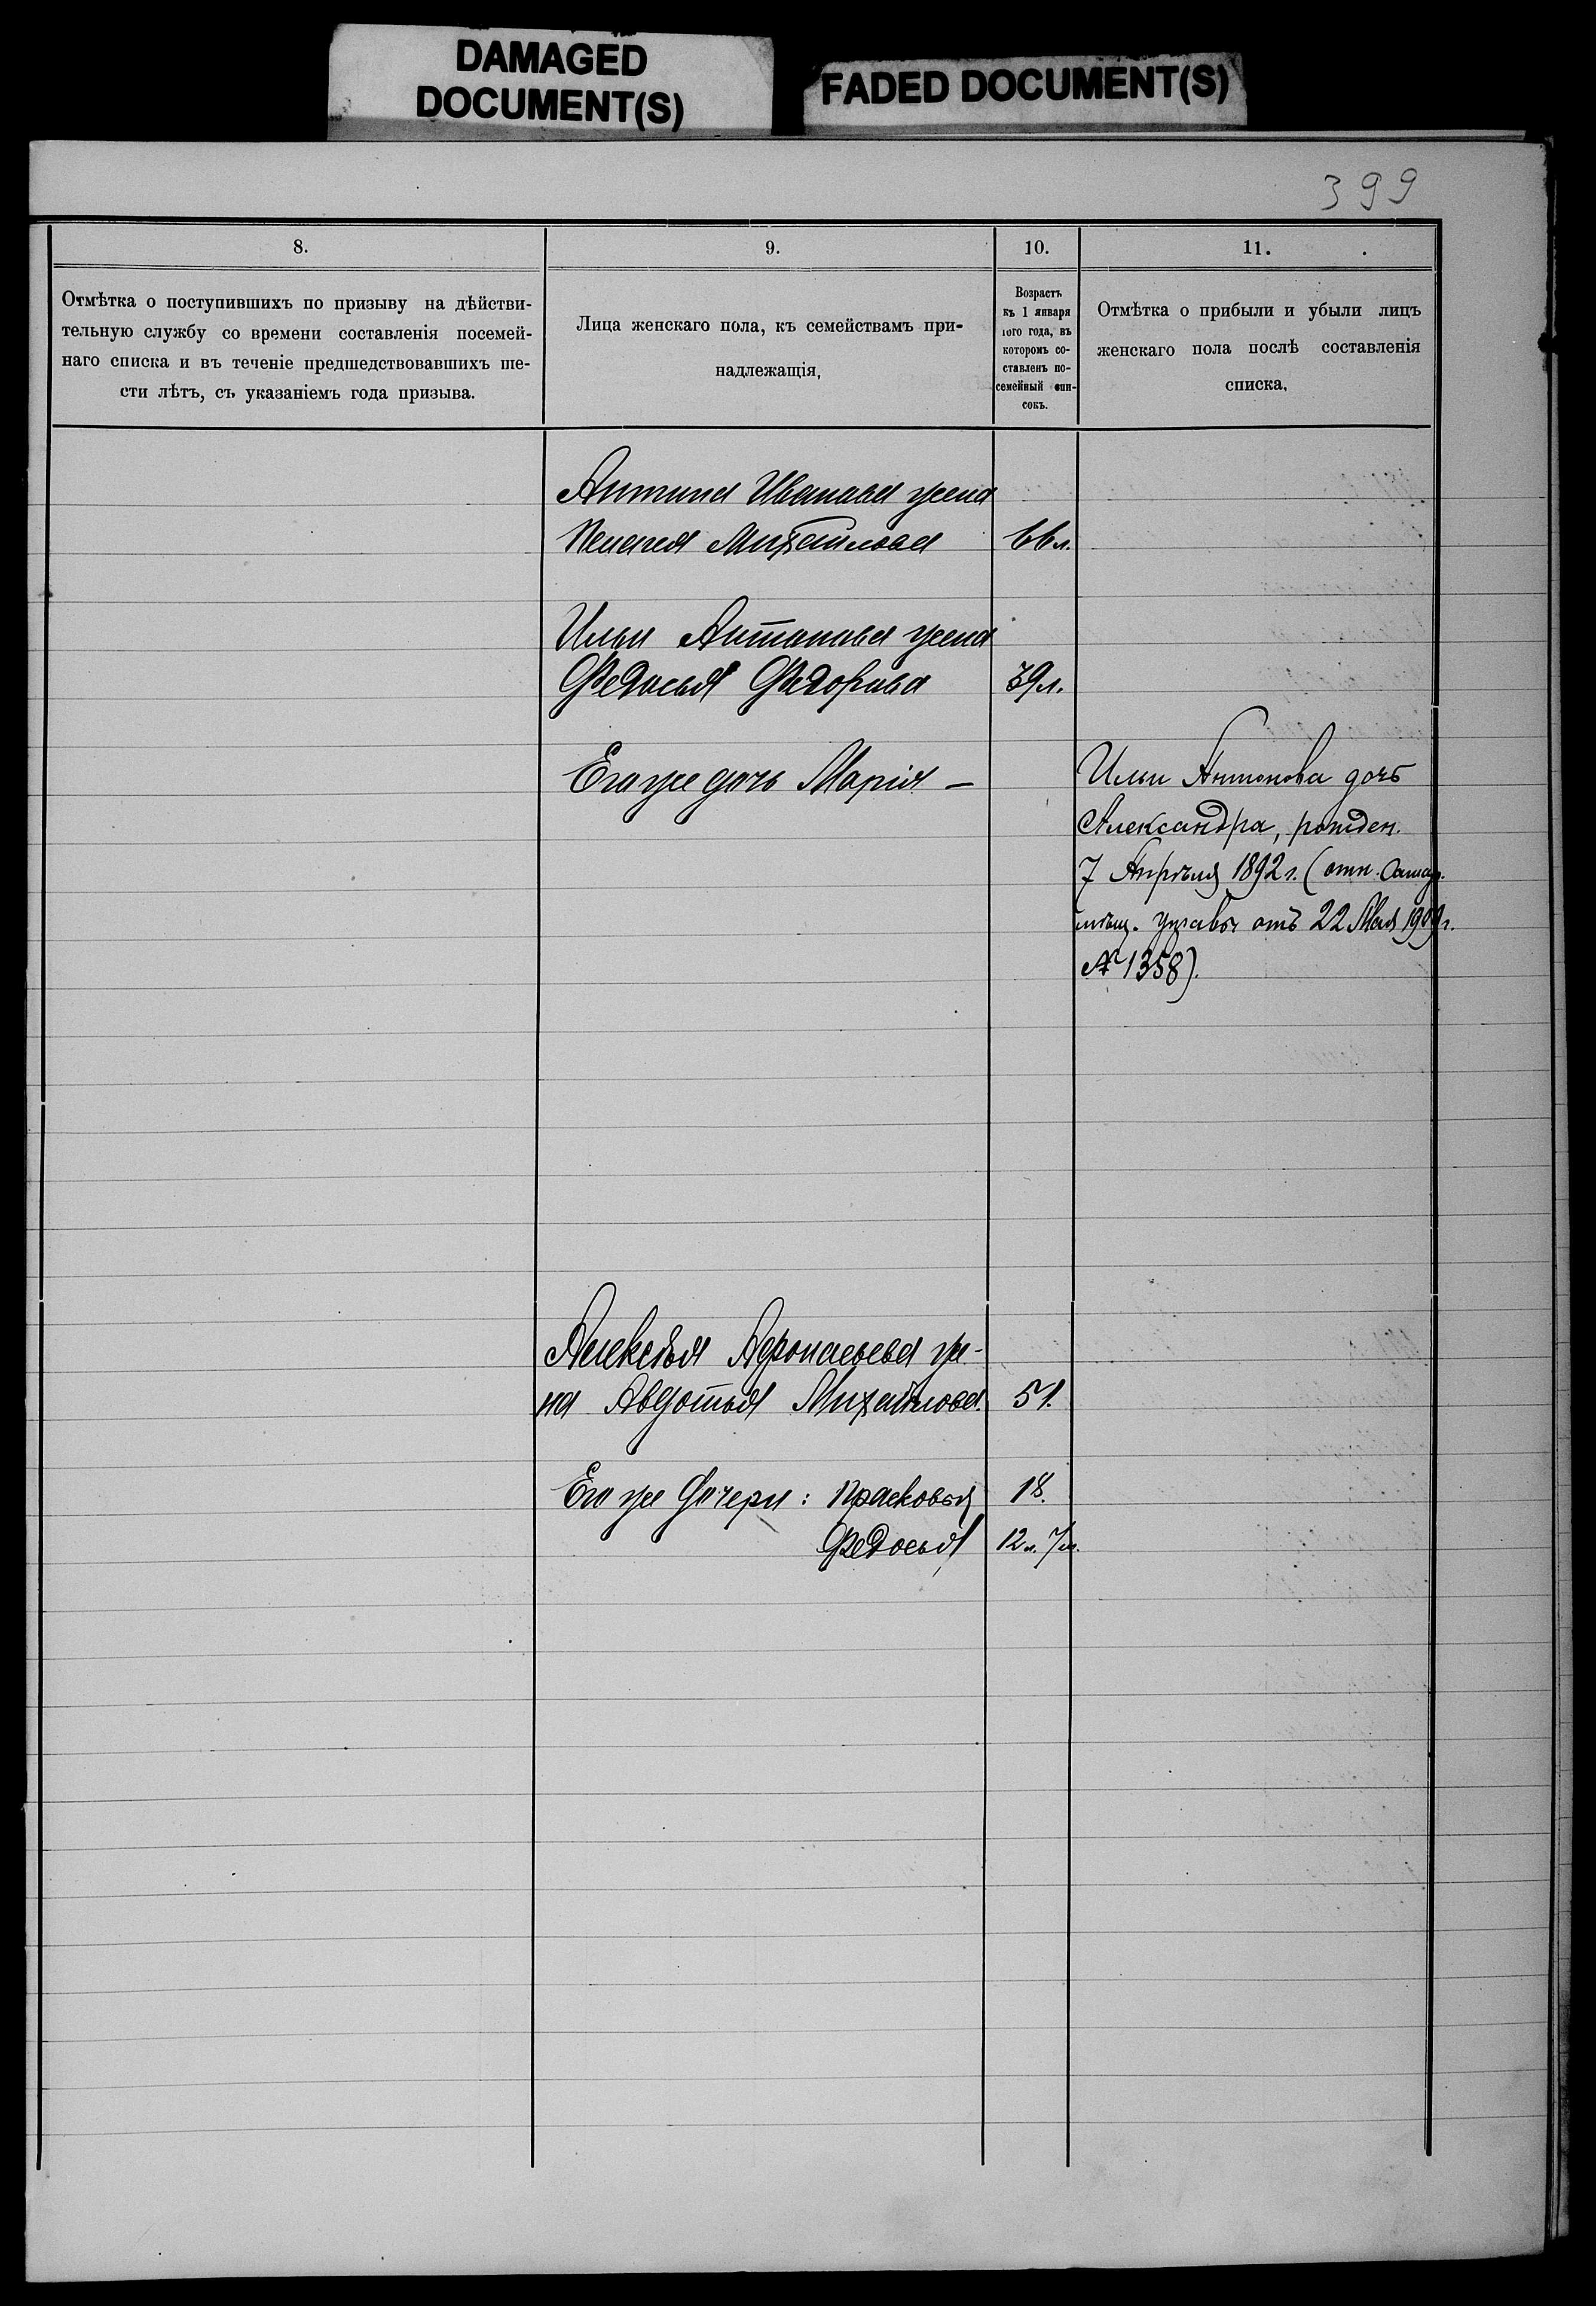 DAMAGED
DOCUMENT(S)
FADED DOCUMENT(S)
399
8.
9.
10.
11.
Отмѣтка о поступившихъ по призыву на дѣйстви-
тельную службу со времени составленія посемей-
наго списка и въ теченіе предшедствовавшихъ ше-
сти лѣтъ, съ указаніемъ года призыва.
Лица женскаго пола, къ семействамъ при-
надлежащія,
Возрастъ
къ 1 января
того года, въ
которомъ со-
ставленъ по-
семейный спи-
сокъ.
Отмѣтка о прибыли и убыли лицъ
женскаго пола послѣ составленія
списка.
Ивановa жена
Михайлова 66 л.
Ильи Антонова жена
Федосья Федорова 39 л.
Его же дочь Марія —
Ильи Антонова дочь
Александра, рожден.
7 Апрѣля 1892 г. (отн. Самар.
мѣщ. управы отъ 22 Мая 1909 г.
№ 1358).
Алексѣя Афонасьева же-
на Авдотья Михайлова. 51.
Его же дочери: Прасковья 18.
Федосья 12 л. 7 м.